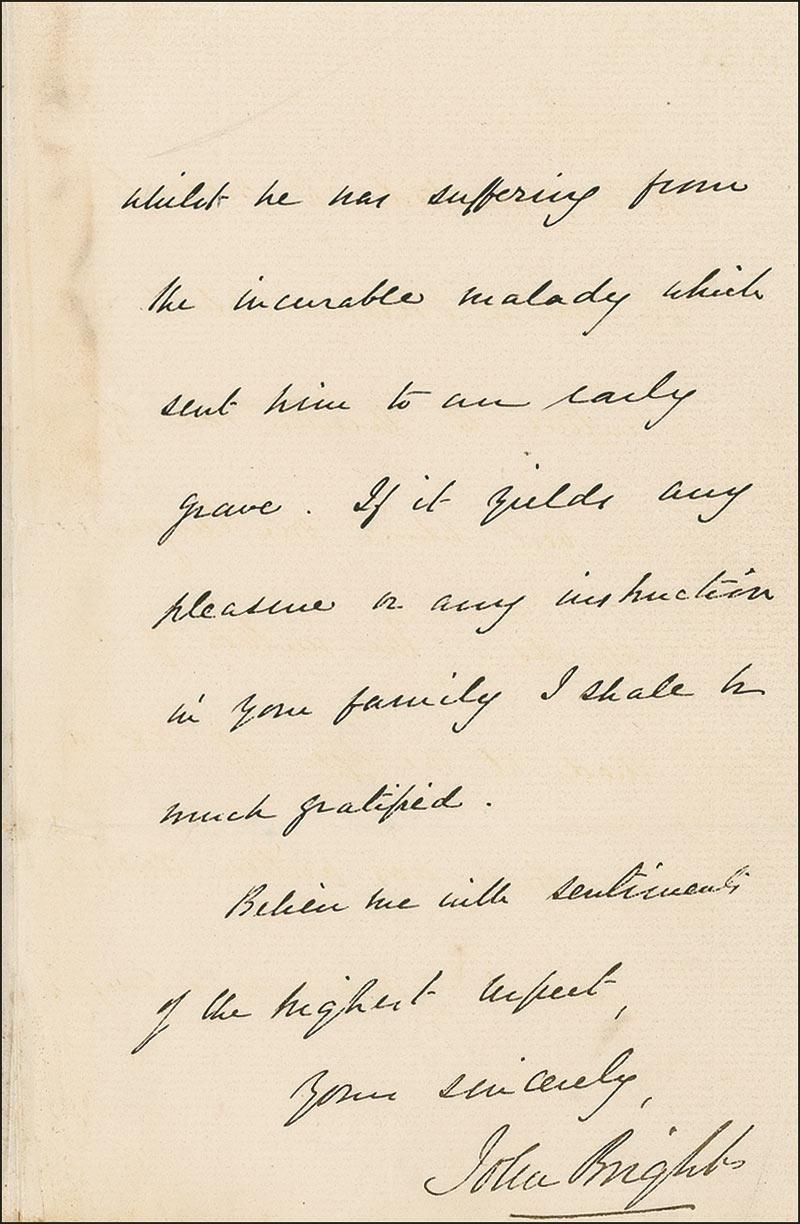 whilst he was suffering from
the incurable malady which
sent him to an early
grave. If it yields any
pleasure or any instruction
in your family I shall be
much gratified.
Believe me with sentiments
of the highest respect,
Yours sincerely,
John Bright